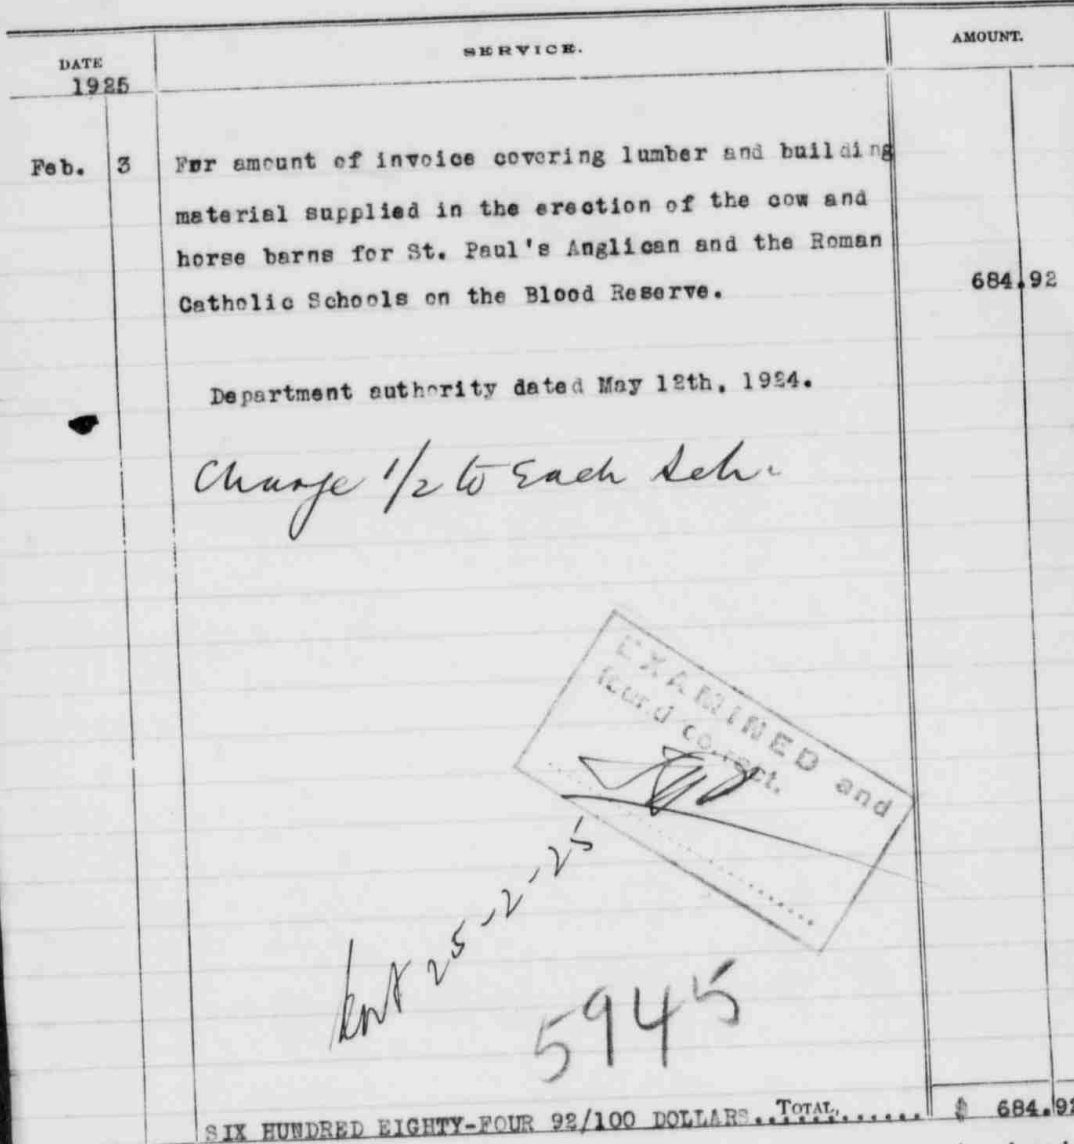 DATE SERVICE. AMOUNT.
1925
Feb. 3 For amount of invoice covering lumber and building
material supplied in the erection of the cow and
horse barns for St. Paul's Anglican and the Roman
Catholic Schools on the Blood Reserve. 684.92
Department authority dated May 12th, 1924.
Charge 1/2 to Each Sch.
EXAMINED and
found correct.
25-2-25
5945
SIX HUNDRED EIGHTY-FOUR 92/100 DOLLARS..TOTAL,...... $ 684.92